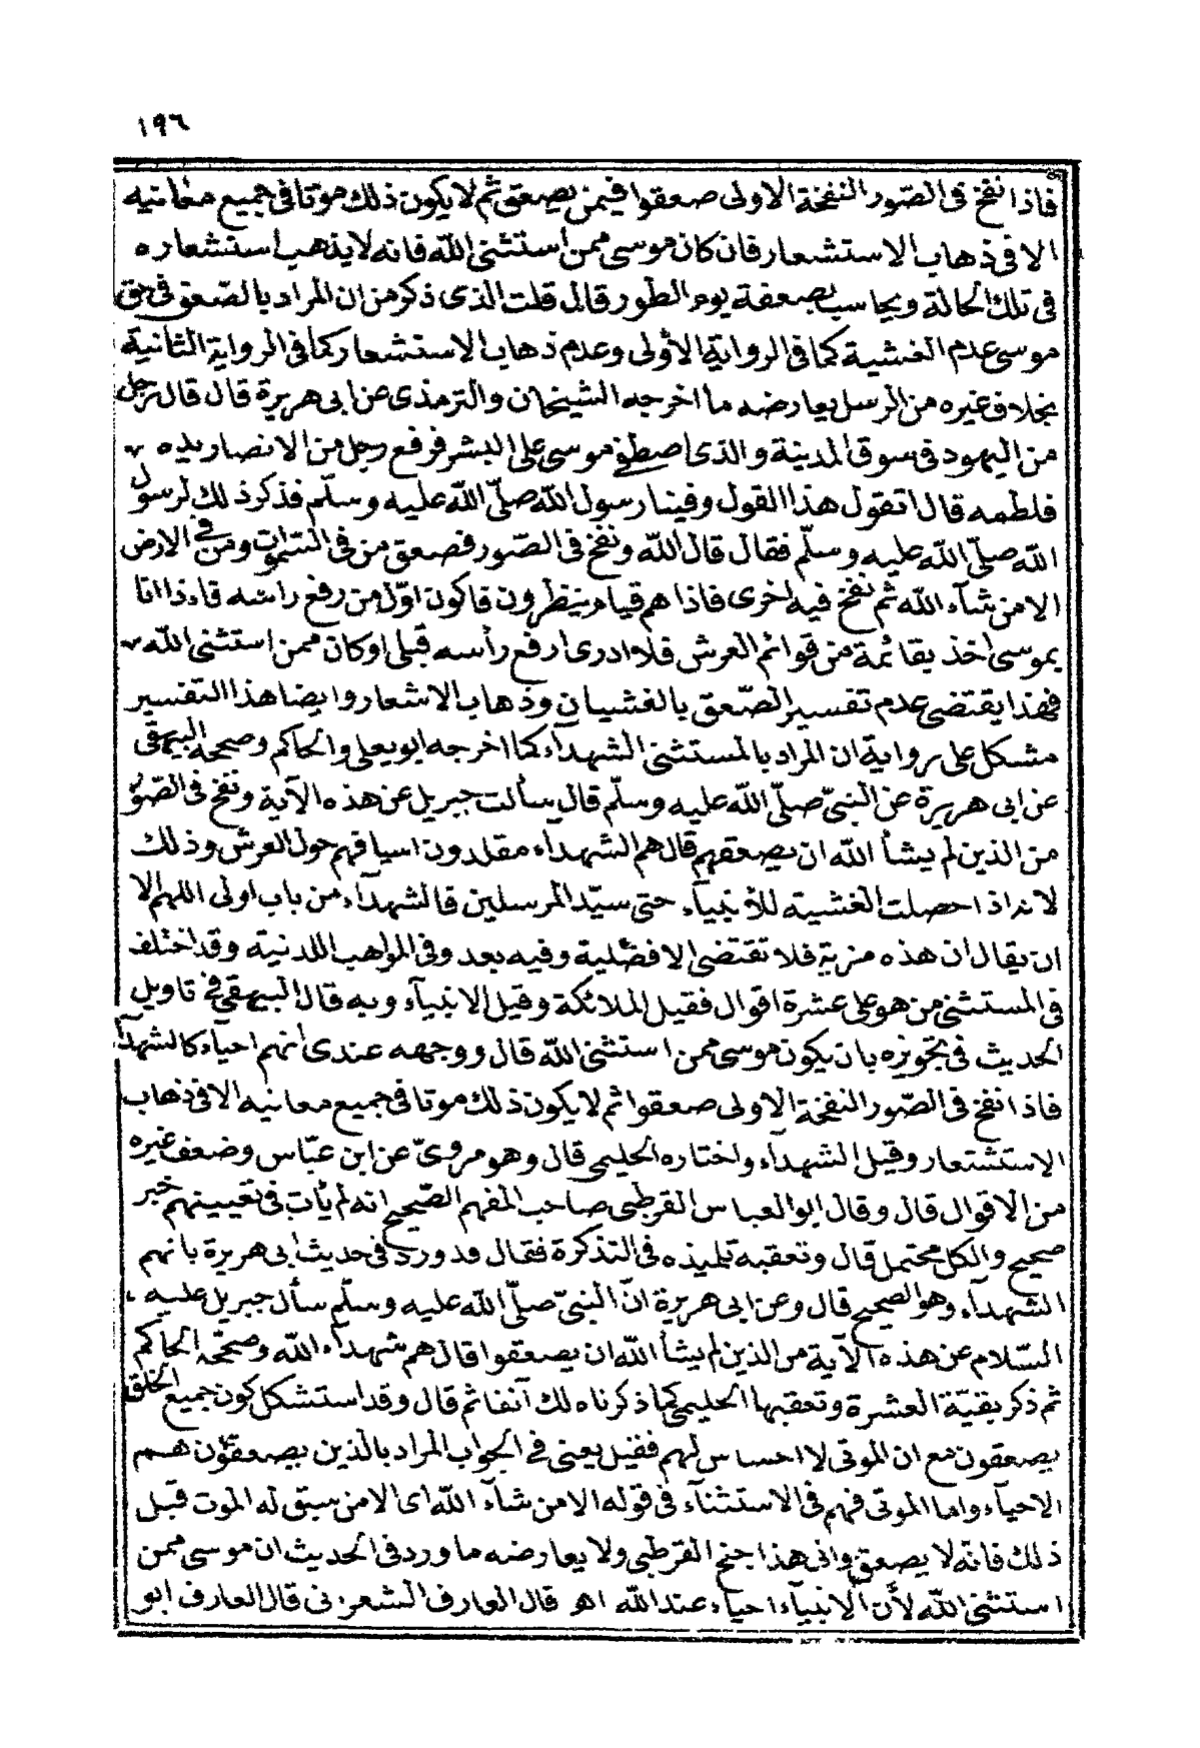 ١٩٦
فاذا نفخ فى الصّور النفخة الاولى صعقوا فيمن يصعق ثم لا يكون ذلك موتا فى جميع معانيه
الا فى ذهاب الاستشعار فان كان موسى ممن استثنى اللّه فانه لا يذهب استشعاره
فى تلك الحالة ويحاسب بصعقة يوم الطور قال قلت الذى ذكر من ان المراد بالصّعق فى حق
موسى عدم الغشية كما فى الرواية الأولى وعدم ذهاب الاستشعار كما فى الرواية الثانية
بخلاف غيره من الرسل يعارضه ما اخرجه الشيخان والترمذى عن ابى هريرة قال قال رجل
من اليهود فى سوق المدينة والذى اصطفى موسى على البشر فرفع رجل من الانصار يده
فلطمه قال اتقول هذا القول وفينا رسول اللّه صلّى اللّه عليه وسلّم فذكر ذلك لرسول
اللّه صلّى اللّه عليه وسلّم فقال قال اللّه ونفخ فى الصّور فصعق من فى السّموات ومن فى الارض
الا من شآء اللّه ثم نفخ فيه اخرى فاذا هم قيام ينظرون فاكون اوّل من رفع راسه فاذا انا
بموسى اخذ بقائمة من قوائم العرش فلا ادرى ارفع رأسه قبلى او كان ممن استثنى اللّه
فهذا يقتضى عدم تفسير الصّعق بالغشيان وذهاب الاشعار وايضا هذا التفسير
مشكل على رواية ان المراد بالمستثنى الشهدآء كما اخرجه ابو يعلى والحاكم وصححه البيهقى
عن ابى هريرة عن النبىّ صلّى اللّه عليه وسلّم قال سألت جبريل عن هذه الآية ونفخ فى الصّور
من الذين لم يشأ اللّه ان يصعقهم قال هم الشهدآء مقلدون اسيافهم حول العرش وذلك
لانه اذا حصلت الغشية للأنبيآء حتى سيّد المرسلين فالشهدآء من باب اولى اللهم الا
ان يقال ان هذه مزية فلا تقتضى الافضلية وفيه بعد وفى المواهب اللدنية وقد اختلف
فى المستثنى من هو على عشرة اقوال فقيل الملائكة وقيل الانبيآء وبه قال البيهقى فى تاويل
الحديث فى تجويزه بان يكون موسى ممن استثنى اللّه قال ووجهه عندى انهم احيآء كالشهدآ
فاذا نفخ فى الصّور النفخة الاولى صعقوا ثم لا يكون ذلك موتا فى جميع معانيه الا فى ذهاب
الاستشتعار وقيل الشهدآء واختاره الحليمى قال وهو مروىّ عن ابن عبّاس وضعف غيره
من الاقوال قال وقال ابو العباس القرطبى صاحب المفهم الصّحيح انه لم يأت فى تعيينهم خبر
صحيح والكل محتمل قال وتعقبه تلميذه فى التذكرة فقال قد ورد فى حديث ابى هريرة بانهم
الشهدآء وهو الصحيح قال وعن ابى هريرة انّ النبىّ صلّى اللّه عليه وسلّم سأل جبريل عليه
السّلام عن هذه الآية من الذين لم يشأ اللّه ان يصعقوا قال هم شهدآء اللّه وصحّحه الحاكم
ثم ذكر بقيّة العشرة وتعقبها الحليمى كما ذكرناه لك آنفا ثم قال وقد استشكل كون جميع الخلق
يصعقون مع ان الموتى لا احساس لهم فقيل يعنى فى الجواب المراد بالذين يصعقون هم
الاحيآء واما الموتى فهم فى الاستثنآء فى قوله الا من شآء اللّه اى الا من سبق له الموت قبل
ذلك فانه لا يصعق والى هذا جنح القرطبى ولا يعارضه ما ورد فى الحديث ان موسى ممن
استثنى اللّه لأن الأنبيآء احياء عند اللّه اهـ قال العارف الشعرنى قال العارف ابو